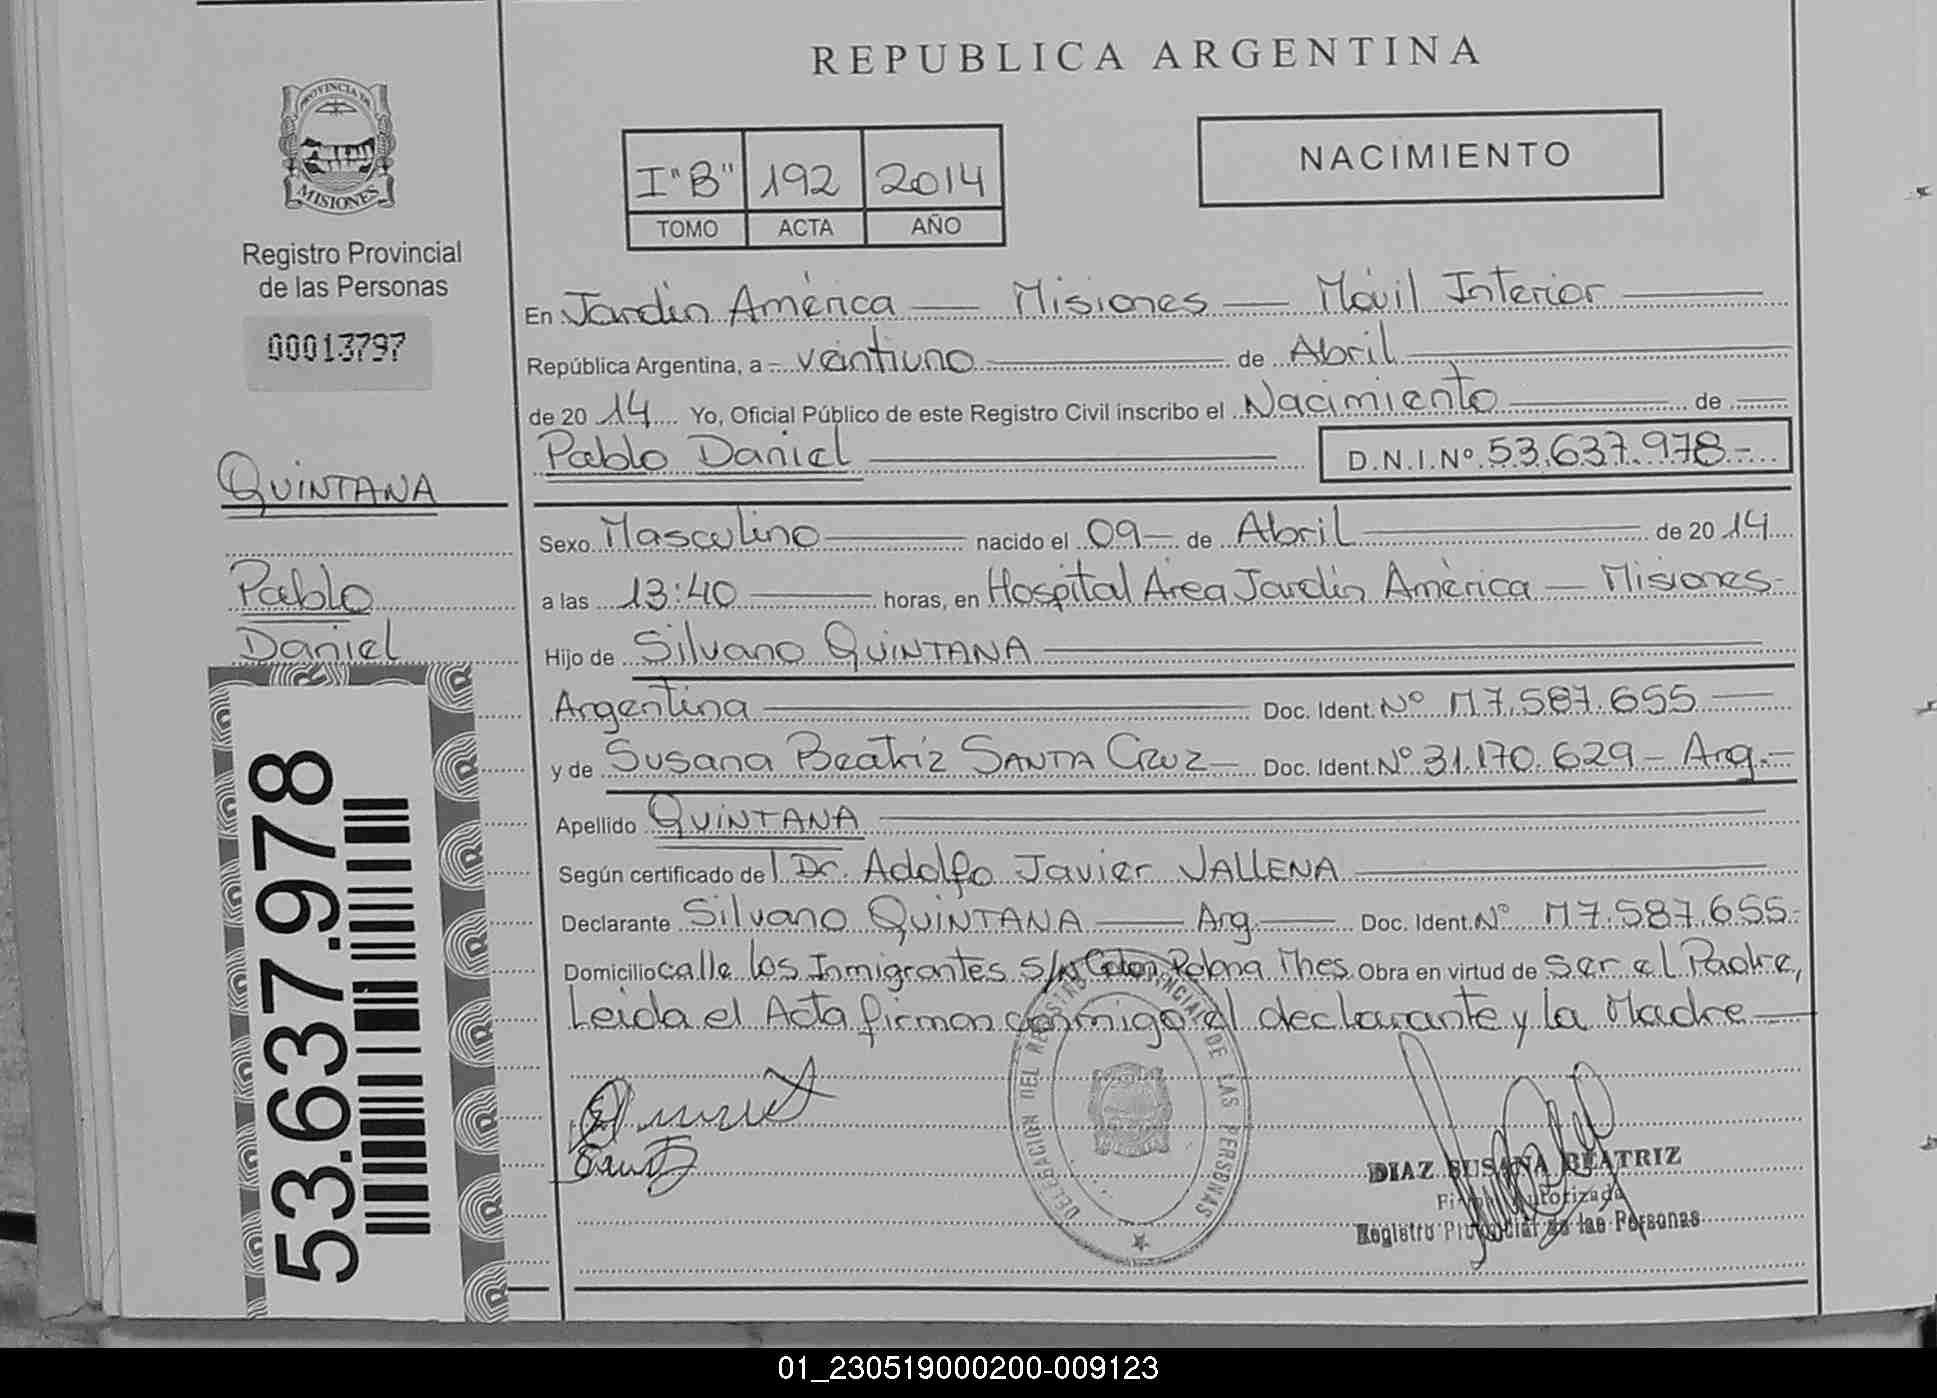 REPUBLICA ARGENTINA
PROVINCIA DE
MISIONES
Registro Provincial
de las Personas
00013797
QUINTANA
Pablo
Daniel
53.637.978
I "B" 192 2014
TOMO ACTA AÑO
NACIMIENTO
En Jardín América — Misiones — Móvil Interior
República Argentina, a veintiuno de Abril
de 20 14 Yo, Oficial Público de este Registro Civil inscribo el Nacimiento de
Pablo Daniel D.N.I.Nº 53.637.978-
Sexo Masculino nacido el 09 de Abril de 20 14
a las 13:40 horas, en Hospital Área Jardín América — Misiones-
Hijo de Silvano QUINTANA
Argentina Doc. Ident. Nº M7.587.655
y de Susana Beatriz SANTA CRUZ Doc. Ident. Nº 31.170.629 - Arg.-
Apellido QUINTANA
Según certificado del Dr. Adolfo Javier VALLENA
Declarante Silvano QUINTANA — Arg. Doc. Ident. Nº M7.587.655.-
Domicilio calle los Inmigrantes s/Nº Colon. Polana Mnes. Obra en virtud de ser el Padre,
Leida el Acta firman conmigo el declarante y la Madre
DELEGACION DEL REGISTRO PROVINCIAL DE LAS PERSONAS
DIAZ SUSANA BEATRIZ
Firma Autorizada
Registro Provincial de las Personas
01_230519000200-009123